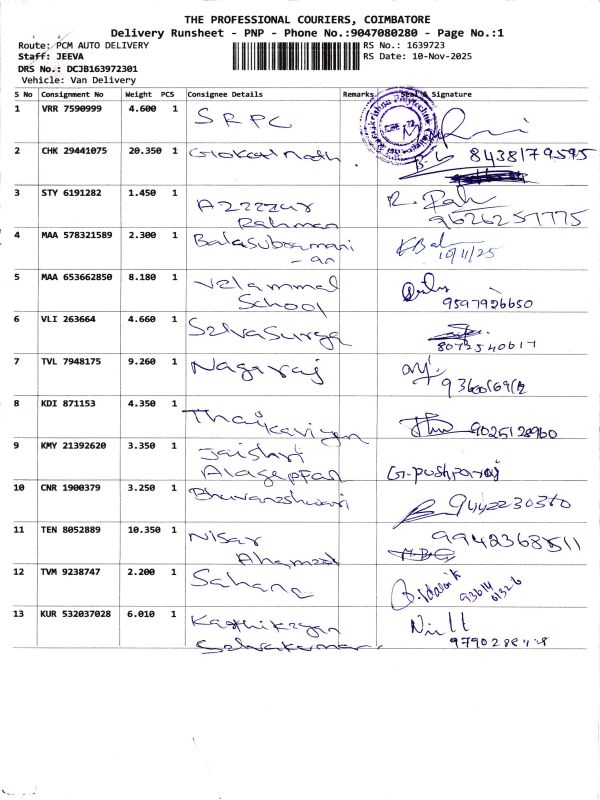 THE PROFESSIONAL COURIERS, COIMBATORE
Delivery Runsheet - PNP - Phone No.:9047080280 - Page No.:1
Route: PCM AUTO DELIVERY RS No.: 1639723
Staff: JEEVA RS Date: 10-Nov-2025
DRS No.: DCJB163972301
Vehicle: Van Delivery
S No Consignment No Weight PCS Consignee Details Remarks Seal & Signature
1 VRR 7590999 4.600 1 SRPC
2 CHK 29441075 20.350 1 8438179595
3 STY 6191282 1.450 1 Azzzzur
Rahman 9626257775
4 MAA 578321589 2.300 1 Balasubramani
-an 10/11/25
5 MAA 653662850 8.180 1 Velammal
School 9597926650
6 VLI 263664 4.660 1 Selvasurya
7 TVL 7948175 9.260 1 Nagaraj
8 KDI 871153 4.350 1 9025128960
9 KMY 21392620 3.350 1 Jaishri
Alagappan G. Pushparaj
10 CNR 1900379 3.250 1 Bhuvaneshwari
11 TEN 8052889 10.350 1 Nisar 9942368511
Ahamed
12 TVM 9238747 2.200 1 Sahana
13 KUR 532037028 6.010 1 Karthikeyan
Selvakumar